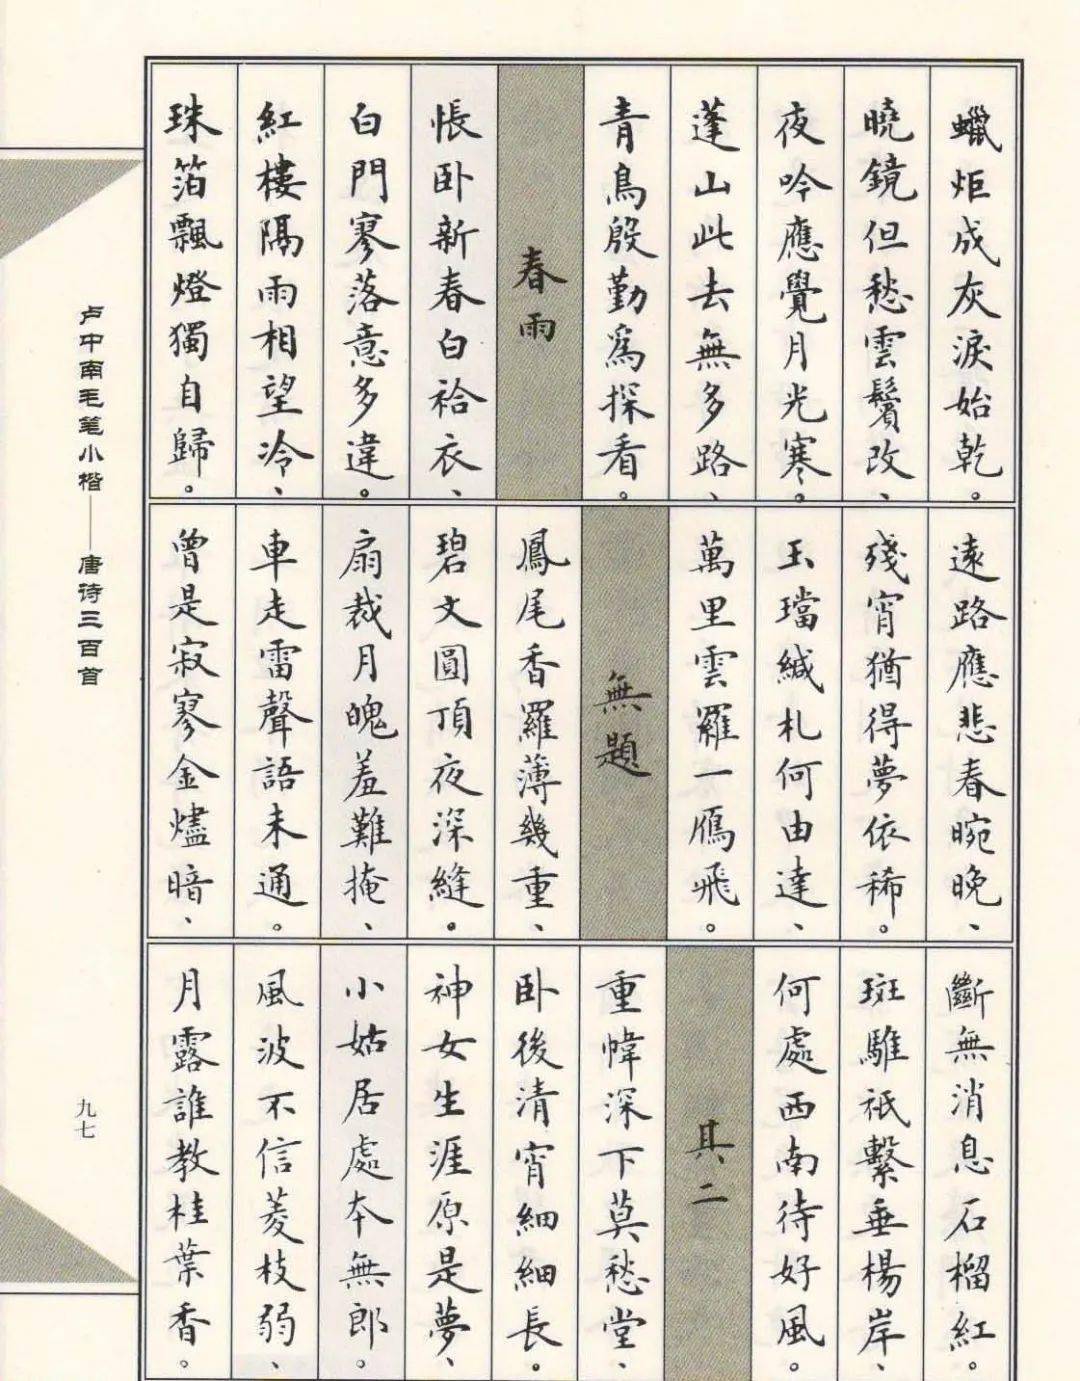 蠟炬成灰淚始乾。
曉鏡但愁雲鬢改、
夜吟應覺月光寒。
蓬山此去無多路、
青鳥殷勤為探看。
春雨
悵卧新春白袷衣、
白門寥落意多違。
紅樓隔雨相望冷、
珠箔飄燈獨自歸。
遠路應悲春晼晚、
殘宵猶得夢依稀。
玉璫緘札何由達、
萬里雲羅一鴈飛。
無題
鳳尾香羅薄幾重、
碧文圓頂夜深縫。
扇裁月魄羞難掩、
車走雷聲語未通。
曾是寂寥金燼暗、
斷無消息石榴紅。
斑騅祇繫垂楊岸、
何處西南待好風。
其二
重幃深下莫愁堂、
卧後清宵細細長。
神女生涯原是夢、
小姑居處本無郎。
風波不信菱枝弱、
月露誰教桂葉香。
卢中南毛笔小楷——唐诗三百首
九七